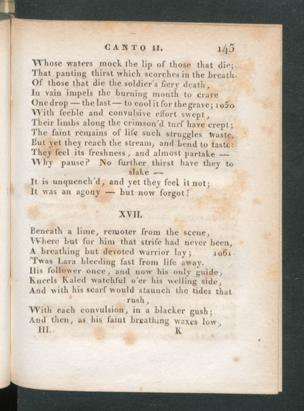 CANTO II. 145
Whose waters mock the lip of those that die;
That panting thirst which scorches in the breath
Of those that die the soldier's fiery death,
In vain impels the burning mouth to crave
One drop — the last — to cool it for the grave; 1050
With feeble and convulsive effort swept,
Their limbs along the crimson'd turf have crept;
The faint remains of life such struggles waste,
But yet they reach the stream, and bend to taste:
They feel its freshness, and almost partake —
Why pause? No further thirst have they to
slake —
It is unquench'd, and yet they feel it not;
It was an agony — but now forgot!
XVII.
Beneath a lime, remoter from the scene,
Where but for him that strife had never been,
A breathing but devoted warrior lay; 1061
'Twas Lara bleeding fast from life away.
His follower once, and now his only guide,
Kneels Kaled watchful o'er his welling side,
And with his scarf would staunch the tides that
rush,
With each convulsion, in a blacker gush;
And then, as his faint breathing waxes low,
III. K